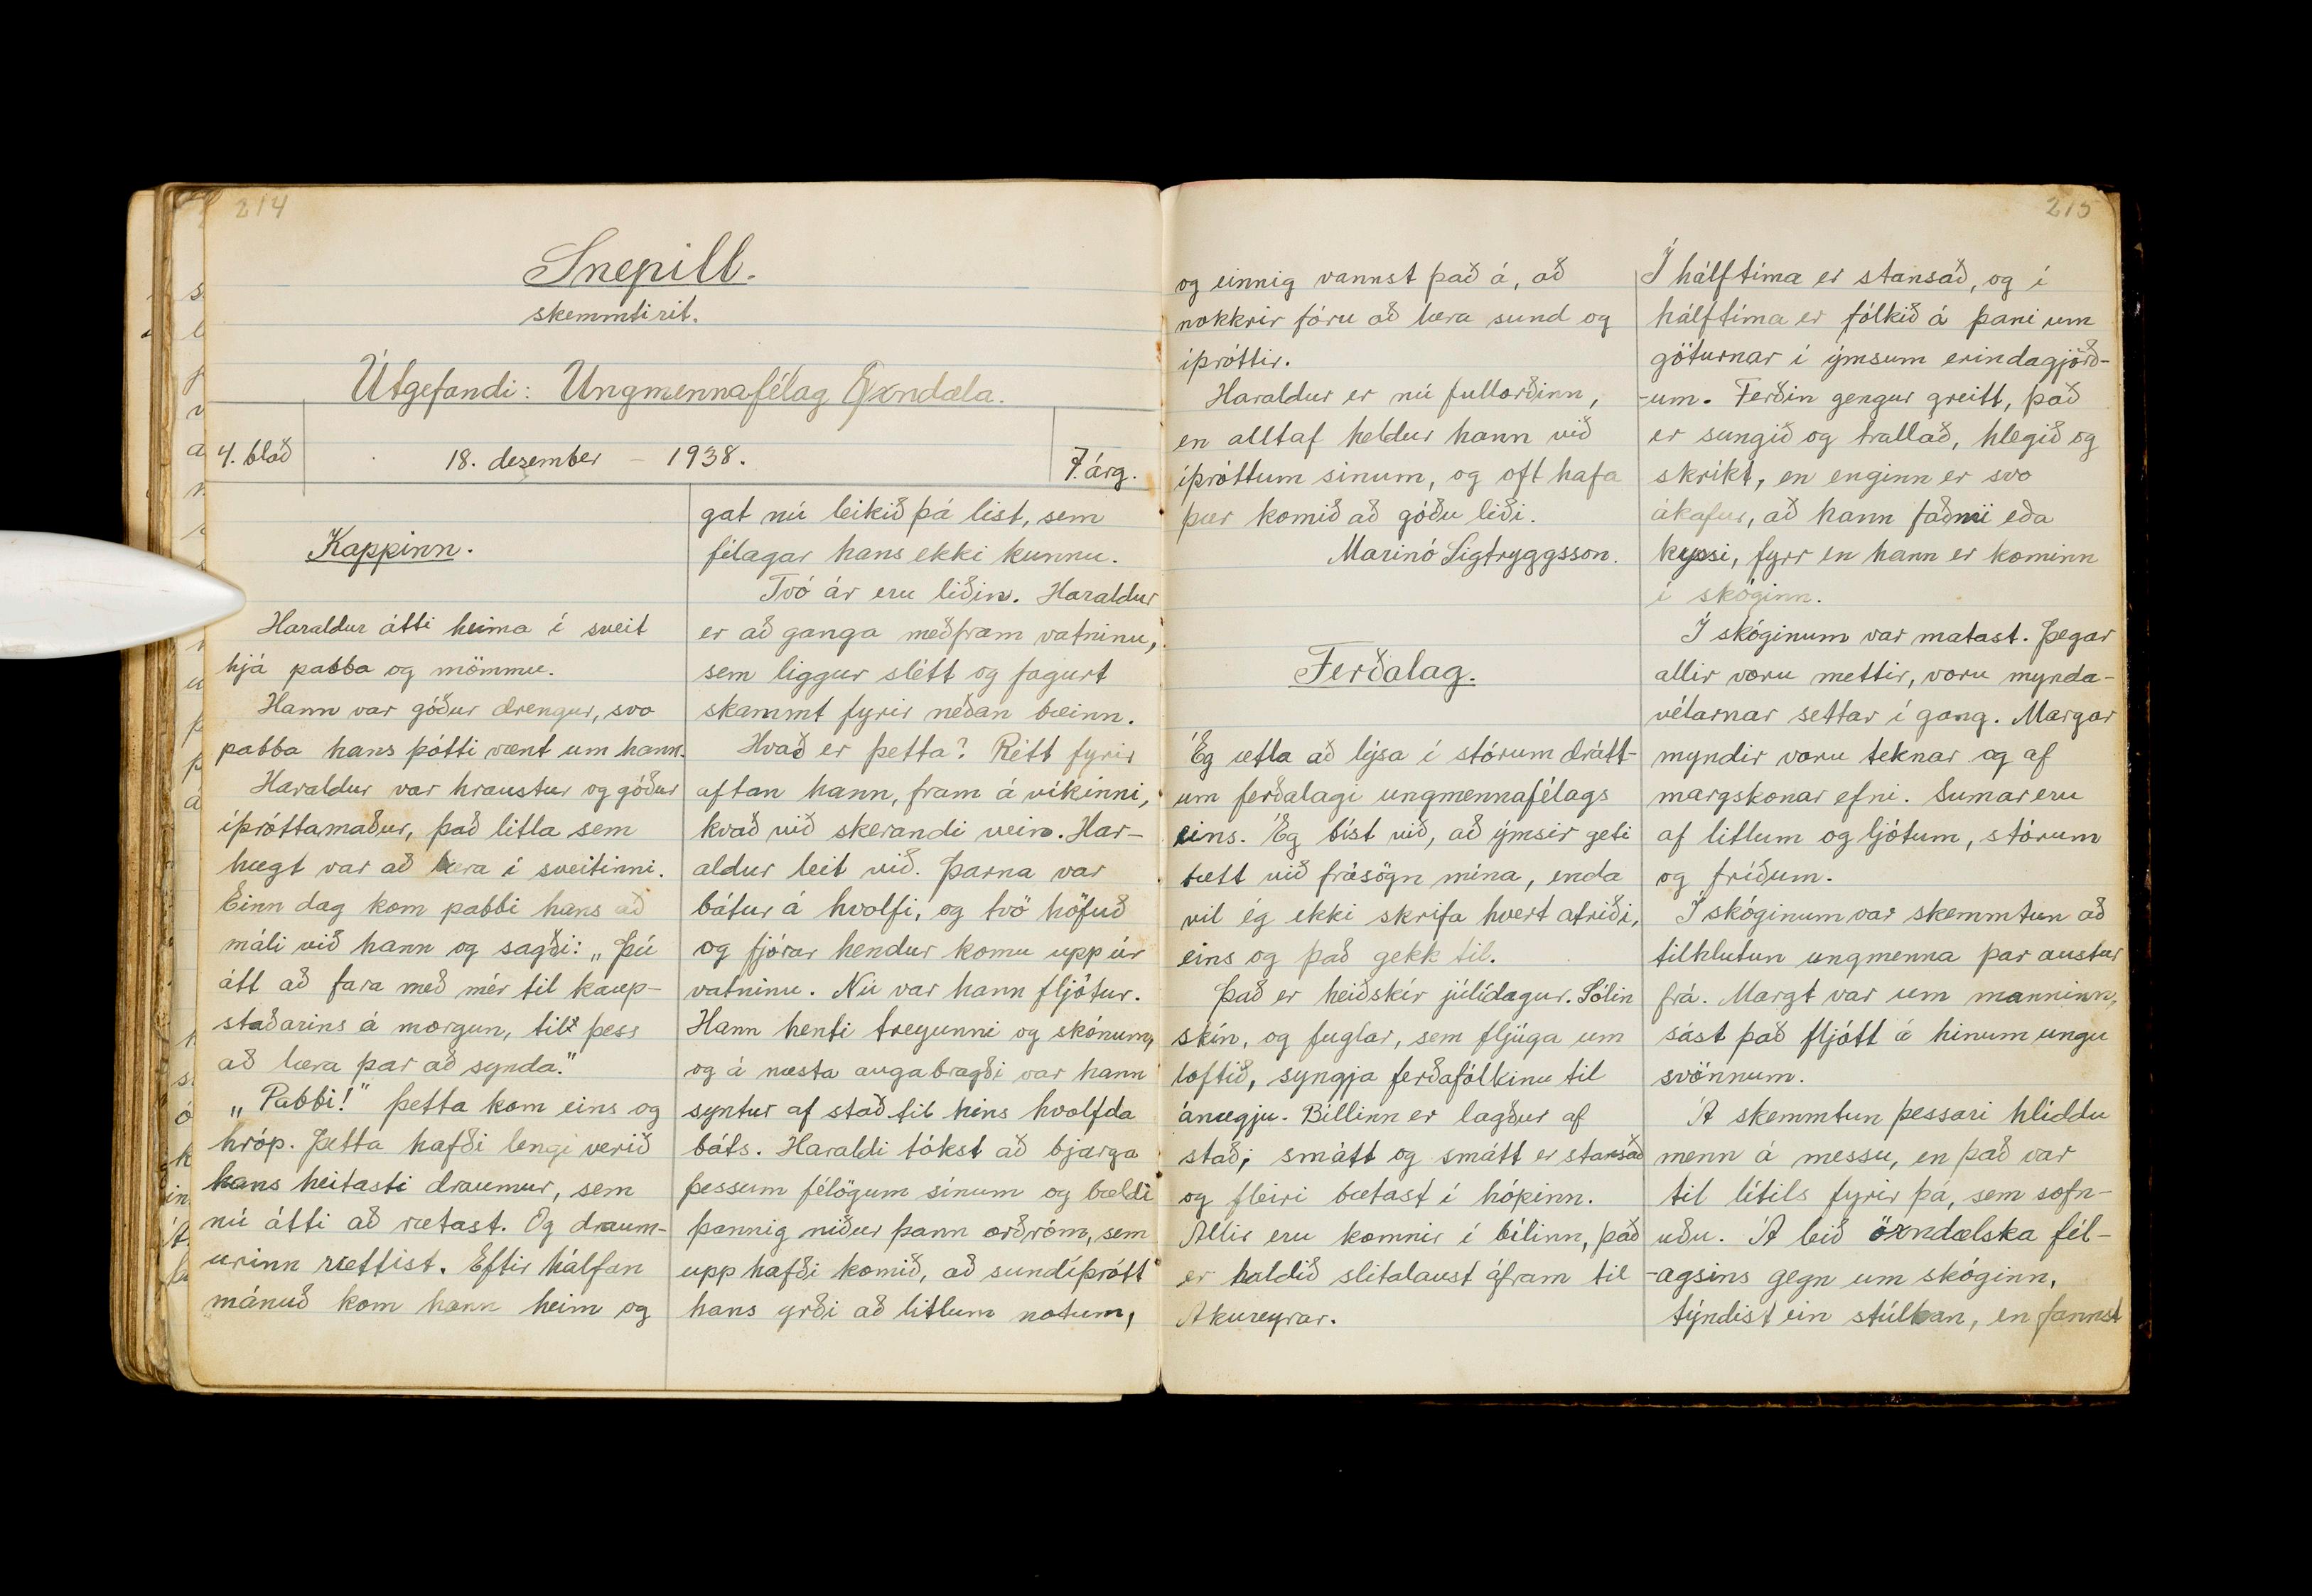 214
Snepill.
skemmtirit.
Útgefandi: Ungmennafélag Öxndæla.
4. blað
18. desember - 1938.
7. árg.
Kappinn.
Haraldur átti heima í sveit
hjá pabba og mömmu.
Hann var góður drengur, svo
pabba hans þótti vænt um hann.
Haraldur var hraustur og góður
íþróttamaður, það litla sem
hægt var að læra í sveitinni.
Einn dag kom pabbi hans að
máli við hann og sagði: „Þú
átt að fara með mér til kaup-
staðarins á morgun, til þess
að læra þar að synda."
„Pabbi!" þetta kom eins og
hróp. Þetta hafði lengi verið
hans heitasti draumur, sem
nú átti að rætast. Og draum-
urinn rættist. Eftir hálfan
mánuð kom hann heim og
gat nú leikið þá list, sem
félagar hans ekki kunnu.
Tvö ár eru liðin. Haraldur
er að ganga meðfram vatninu,
sem liggur slétt og fagurt
skammt fyrir neðan bæinn.
Hvað er þetta? Rétt fyrir
aftan hann, fram á víkinni,
kvað við skerandi vein. Har-
aldur leit við. Þarna var
bátur á hvolfi, og tvö höfuð
og fjórar hendur komu upp úr
vatninu. Nú var hann fljótur.
Hann henti treyunni og skónum,
og á næsta augabragði var hann
syntur af stað til hins hvolfda
báts. Haraldi tókst að bjarga
þessum félögum sínum og bældi
þannig niður þann orðróm, sem
upp hafði komið, að sundíþrótt
hans yrði að litlum notum,
215
og einnig vannst það á, að
nokkrir fóru að læra sund og
íþróttir.
Haraldur er nú fullorðinn,
en alltaf heldur hann við
íþróttum sínum, og oft hafa
þær komið að góðu liði.
Marinó Sigtryggsson.
Ferðalag.
Ég ætla að lýsa í stórum drátt-
um ferðalagi ungmennafélags
eins. Ég bíst við, að ýmsir geti
bætt við frásögn mína, enda
vil ég ekki skrifa hvert atriði,
eins og það gekk til.
Það er heiðskír júlídagur. Sólin
skín, og fuglar, sem fljúga um
loftið, syngja ferðafólkinu til
ánægju. Bíllinn er lagður af
stað; smátt og smátt er stansað
og fleiri bætast í hópinn.
Allir eru komnir í bílinn, það
er haldið slitalaust áfram til
Akureyrar.
Í hálftíma er stansað, og í
hálftíma er fólkið á þani um
göturnar í ýmsum erindagjörð-
-um. Ferðin gengur greitt, það
er sungið og trallað, hlegið og
skríkt, en enginn er svo
ákafur, að hann faðmi eða
kyssi, fyrr en hann er kominn
í skóginn.
Í skóginum var matast. Þegar
allir voru mettir, voru mynda-
vélarnar settar í gang. Margar
myndir voru teknar og af
margskonar efni. Sumar eru
af litlum og ljótum, stórum
og fríðum.
Í skóginum var skemmtun að
tilhlutun ungmenna þar austur
frá. Margt var um manninn,
sást það fljótt á hinum ungu
svönnum.
Á skemmtun þessari hlíddu
menn á messu, en það var
til lítils fyrir þá, sem sofn-
uðu. Á leið öxndælska fél-
-agsins gegn um skóginn,
týndist ein stúlkan, en fannst